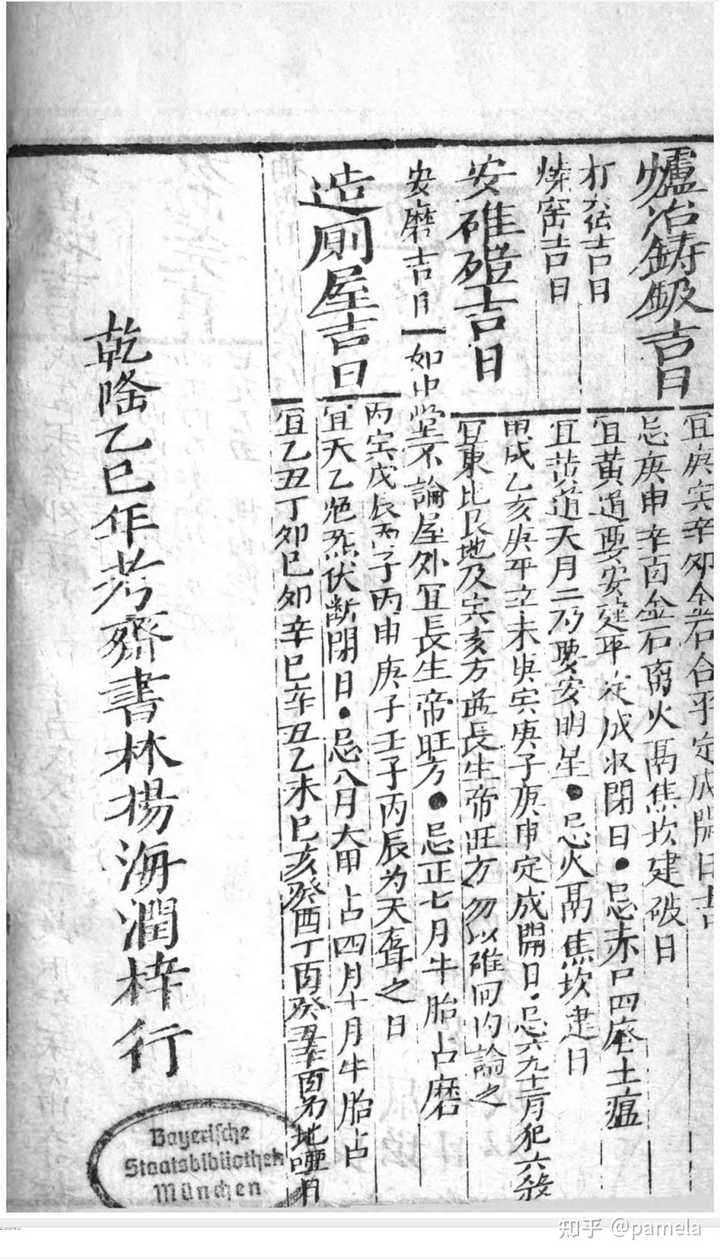 爐冶鋳鈒吉日
宜庚寅辛卯金石合平定成開日吉
忌庚申辛酉金石离火鬲焦坎建破日
打 吉日
宜黃道要安建平定成收閉日●忌赤口四廢土瘟
燒窑吉日
宜黃道天月二 要安明星●忌火鬲焦坎建日
安碓磑吉日
甲戌乙亥庚 辛未庚寅庚子庚申定成開日●忌六九十二月犯六殺
宜東北艮地及寅亥方 長生帝旺方勿以碓回內論之
安磨吉日
如中堂不論屋外宜長生帝旺方●忌正七月牛胎占磨
造厠屋吉日
丙寅戊辰丙子丙申庚子壬子丙辰为天聾之日
宜天乙绝 伏断閉日●忌八月 占四月十月牛胎占
宜乙丑丁卯己卯辛巳辛丑乙未己亥癸酉丁酉癸丑辛酉 地啞日
乾隆乙巳年考齋書林楊海潤梓行
Bayerische
Staatsbibliothek
München
知乎 @pamela